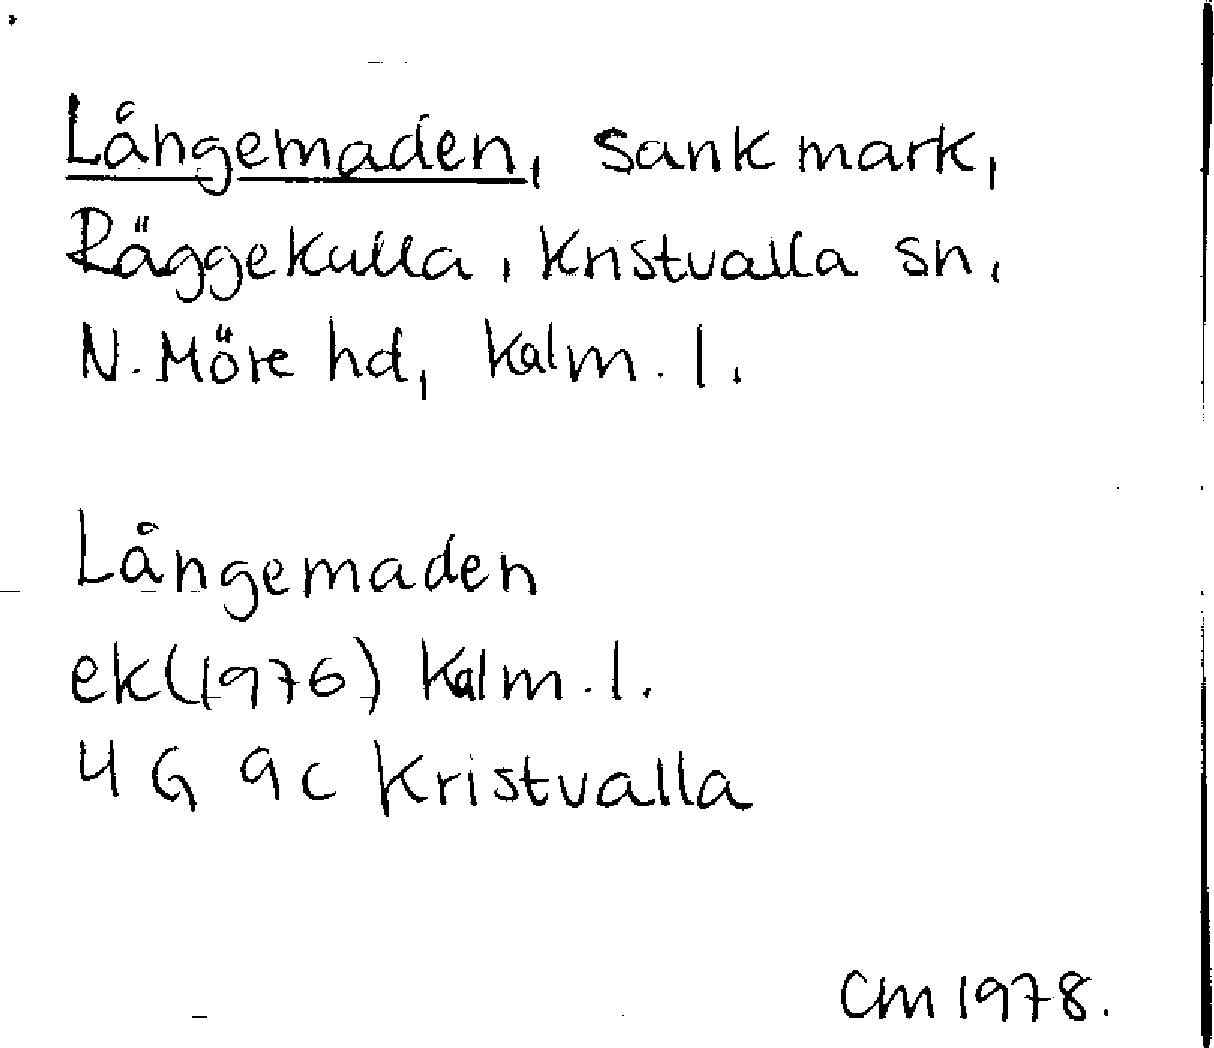 Långemaden, sank mark,
Räggekulla, Kristvalla sn,
N. Möre hd, Kalm. l.
Långemaden
ek (1976) Kalm. l.
4 G 9c Kristvalla
CM 1978.